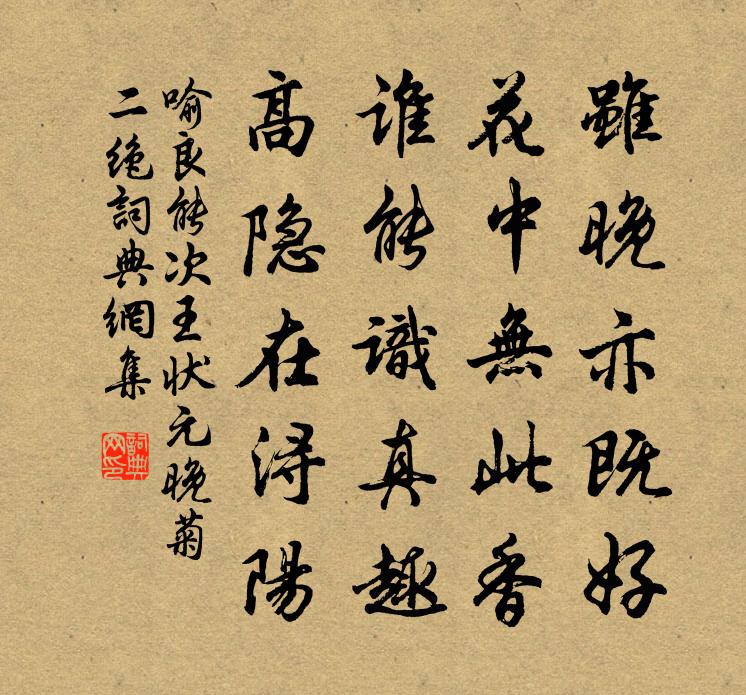 雖晚亦既好
花中無此香
誰能識真趣
高隐在潯陽
喻良能次王狀元晚菊
二絶詞典網集
詞典
网印